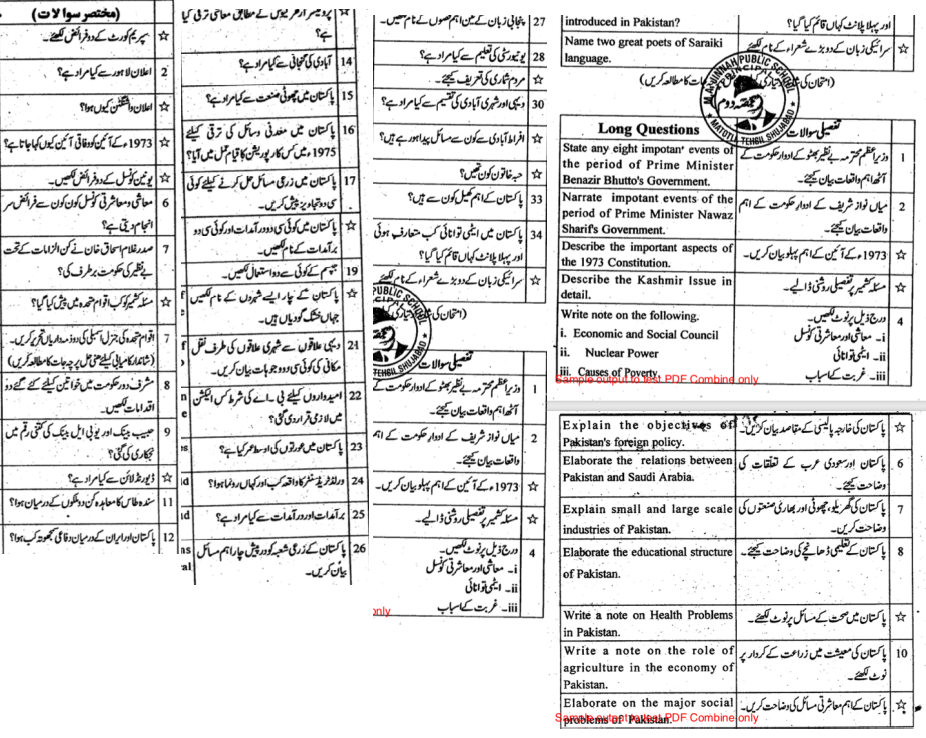 (مختصر سوالات)
☆ سپریم کورٹ کے دو فرائض لکھئے۔
2 اعلان لاہور سے کیا مراد ہے؟
☆ اعلان واشنگٹن کیوں ہوا؟
☆ 1973ء کے آئین کو وفاقی آئین کیوں کہا جاتا ہے؟
☆ یونین کونسل کے دو فرائض لکھیں۔
6 معاشی و معاشرتی کونسل کون کون سے فرائض سر
انجام دیتی ہے؟
7 صدر غلام اسحاق خان نے کن الزامات کے تحت
بے نظیر کی حکومت برطرف کی؟
☆ مسئلہ کشمیر کو کب اقوام متحدہ میں پیش کیا گیا؟
7 اقوام متحدہ کی جنرل اسمبلی کی دو ذمہ داریاں تحریر کریں۔
(شاندار کامیابی کیلئے حتمی حل پرچہ جات کا مطالعہ کریں)
8 مشرف دور حکومت میں خواتین کیلئے کئے گئے دو
اقدامات لکھیں۔
9 حبیب بینک اور یو بی ایل بینک کی کتنی رقم میں
نجکاری کی گئی؟
☆ ڈیورنڈ لائن سے کیا مراد ہے؟
11 سندھ طاس کا معاہدہ کن دو ملکوں کے درمیان ہوا؟
12 پاکستان اور ایران کے درمیان دفاعی سمجھوتہ کب ہوا؟
☆ کے مطابق معاشی ترقی کیا
ہے؟
14 آبادی کی گنجانی سے کیا مراد ہے؟
15 پاکستان میں چھوٹی صنعت سے کیا مراد ہے؟
16 پاکستان میں معدنی وسائل کی ترقی کیلئے
1975ء میں کس کارپوریشن کا قیام عمل میں آیا؟
17 پاکستان میں زرعی مسائل حل کرنے کیلئے کوئی
سی دو تجاویز پیش کریں۔
☆ پاکستان میں کوئی سی دو درآمدات اور کوئی سی دو
برآمدات کے نام لکھیں۔
19 جپسم کے کوئی سے دو استعمال لکھیں۔
☆ پاکستان کے چار ایسے شہروں کے نام لکھیں
جہاں خشک گودیاں ہیں۔
21 دیہی علاقوں سے شہری علاقوں کی طرف نقل
مکانی کی کوئی سی دو وجوہات بیان کریں۔
22 امیدواروں کیلئے بی۔اے کی شرط کس الیکشن
میں لازمی قرار دی گئی؟
23 پاکستان میں عورتوں کی اوسط عمر کیا ہے؟
24 ورلڈ ٹریڈ سنٹر کا واقعہ کب اور کہاں رونما ہوا؟
25 برآمدات اور درآمدات سے کیا مراد ہے؟
26 پاکستان کے زرعی شعبہ کو درپیش چار اہم مسائل
بیان کریں۔
27 پنجابی زبان کے تین اہم لکھیں۔
28 یونیورسٹی کی تعلیم سے کیا مراد ہے؟
☆ مردم شماری کی تعریف کیجئے۔
30 دیہی اور شہری آبادی کی تقسیم سے کیا مراد ہے؟
☆ افراط آبادی سے کون سے مسائل پیدا ہو رہے ہیں؟
☆ حبہ خاتون کون تھیں؟
33 پاکستان کے اہم کھیل کون سے ہیں؟
34 پاکستان میں ایٹمی توانائی کب متعارف ہوئی
اور پہلا پلانٹ کہاں قائم کیا گیا؟
☆ سرائیکی زبان کے دو بڑے شعراء کے نام لکھئے
تفصیلی سوالات
1 وزیراعظم محترمہ بے نظیر بھٹو کے ادوار حکومت کے
آٹھ اہم واقعات بیان کیجئے۔
2 میاں نواز شریف کے ادوار حکومت کے اہم
واقعات بیان کیجئے۔
☆ 1973ء کے آئین کے اہم پہلو بیان کریں۔
☆ مسئلہ کشمیر پر تفصیلی روشنی ڈالیے۔
4 درج ذیل پر نوٹ لکھیں۔
i۔ معاشی اور معاشرتی کونسل
ii۔ ایٹمی توانائی
iii۔ غربت کے اسباب
only
introduced in Pakistan? اور پہلا پلانٹ کہاں قائم کیا گیا؟
Name two great poets of Saraiki سرائیکی زبان کے دو بڑے شعراء کے نام لکھئے ☆
language.
M.A JINNAH PUBLIC SCHOOL
PRINCIPAL
MATOTLI TEHSIL SHUJABAD
Long Questions تفصیلی سوالات
State any eight impotant events of وزیراعظم محترمہ بے نظیر بھٹو کے ادوار حکومت کے 1
the period of Prime Minister آٹھ اہم واقعات بیان کیجئے۔
Benazir Bhutto's Government.
Narrate impotant events of the میاں نواز شریف کے ادوار حکومت کے اہم 2
period of Prime Minister Nawaz واقعات بیان کیجئے۔
Sharif's Government.
Describe the important aspects of 1973ء کے آئین کے اہم پہلو بیان کریں۔ ☆
the 1973 Constitution.
Describe the Kashmir Issue in مسئلہ کشمیر پر تفصیلی روشنی ڈالیے۔ ☆
detail.
Write note on the following. درج ذیل پر نوٹ لکھیں۔ 4
i. Economic and Social Council i۔ معاشی اور معاشرتی کونسل
ii. Nuclear Power ii۔ ایٹمی توانائی
iii. Causes of Poverty iii۔ غربت کے اسباب
Sample output to test PDF Combine only
Explain the objectives of پاکستان کی خارجہ پالیسی کے مقاصد بیان کریں۔ ☆
Pakistan's foreign policy.
Elaborate the relations between پاکستان اور سعودی عرب کے تعلقات کی 6
Pakistan and Saudi Arabia. وضاحت کیجئے۔
Explain small and large scale پاکستان کی گھریلو، چھوٹی اور بھاری صنعتوں کی 7
industries of Pakistan. وضاحت کریں۔
Elaborate the educational structure پاکستان کے تعلیمی ڈھانچے کی وضاحت کیجئے۔ 8
of Pakistan.
Write a note on Health Problems پاکستان میں صحت کے مسائل پر نوٹ لکھئے۔ ☆
in Pakistan.
Write a note on the role of پاکستان کی معیشت میں زراعت کے کردار پر 10
agriculture in the economy of نوٹ لکھئے۔
Pakistan.
Elaborate on the major social پاکستان کے اہم معاشرتی مسائل کی وضاحت کریں۔ ☆
problems of Pakistan.
Sample output to test PDF Combine only